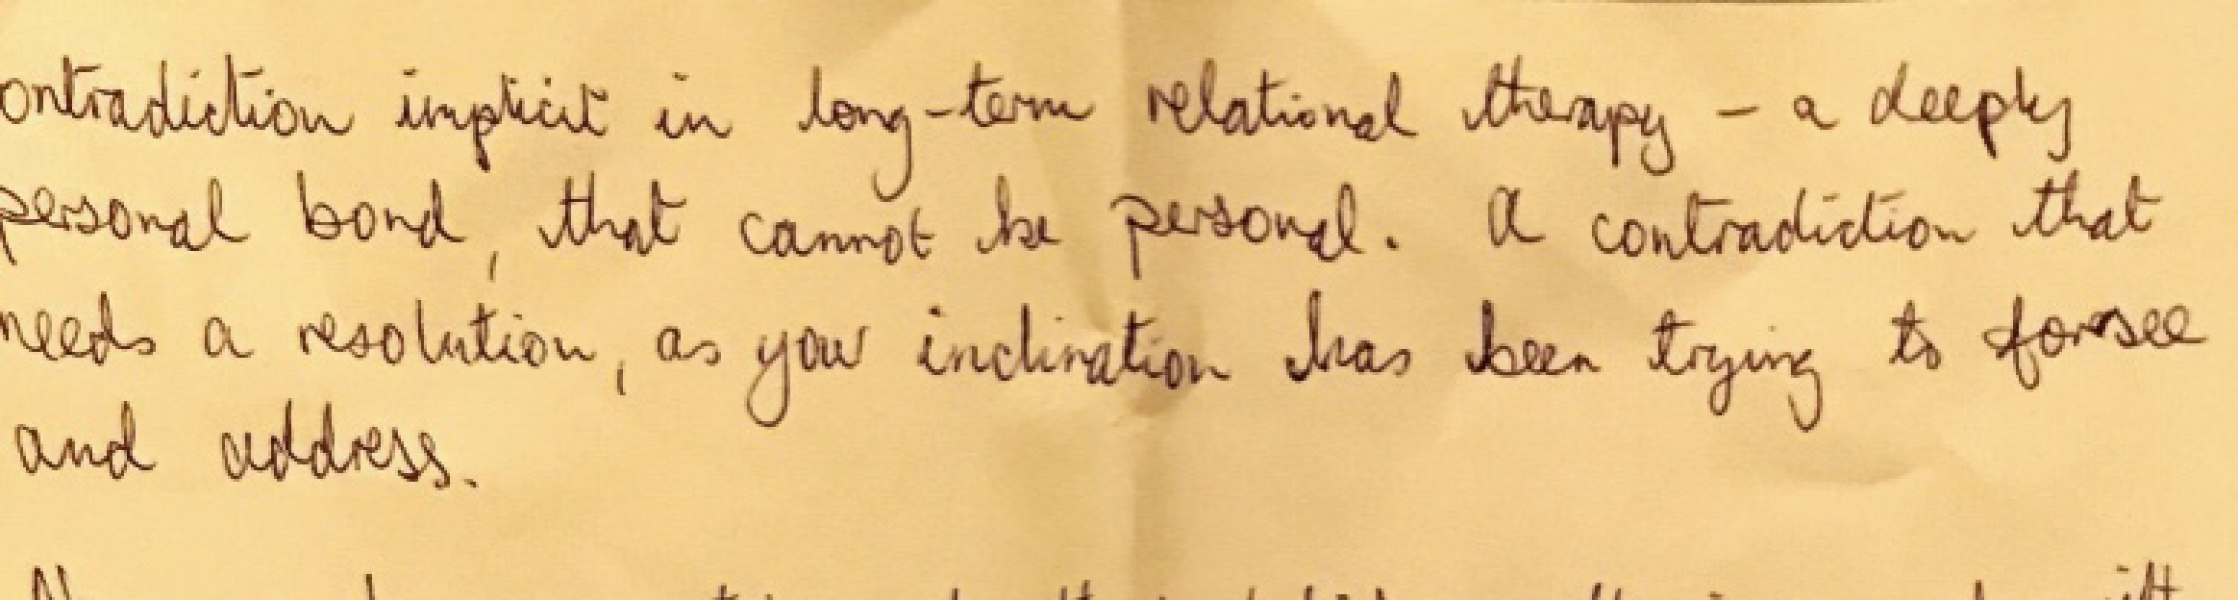 ontradiction implicit in long-term relational therapy - a deeply
personal bond, that cannot be personal. A contradiction that
needs a resolution, as your inclination has been trying to forsee
and address.